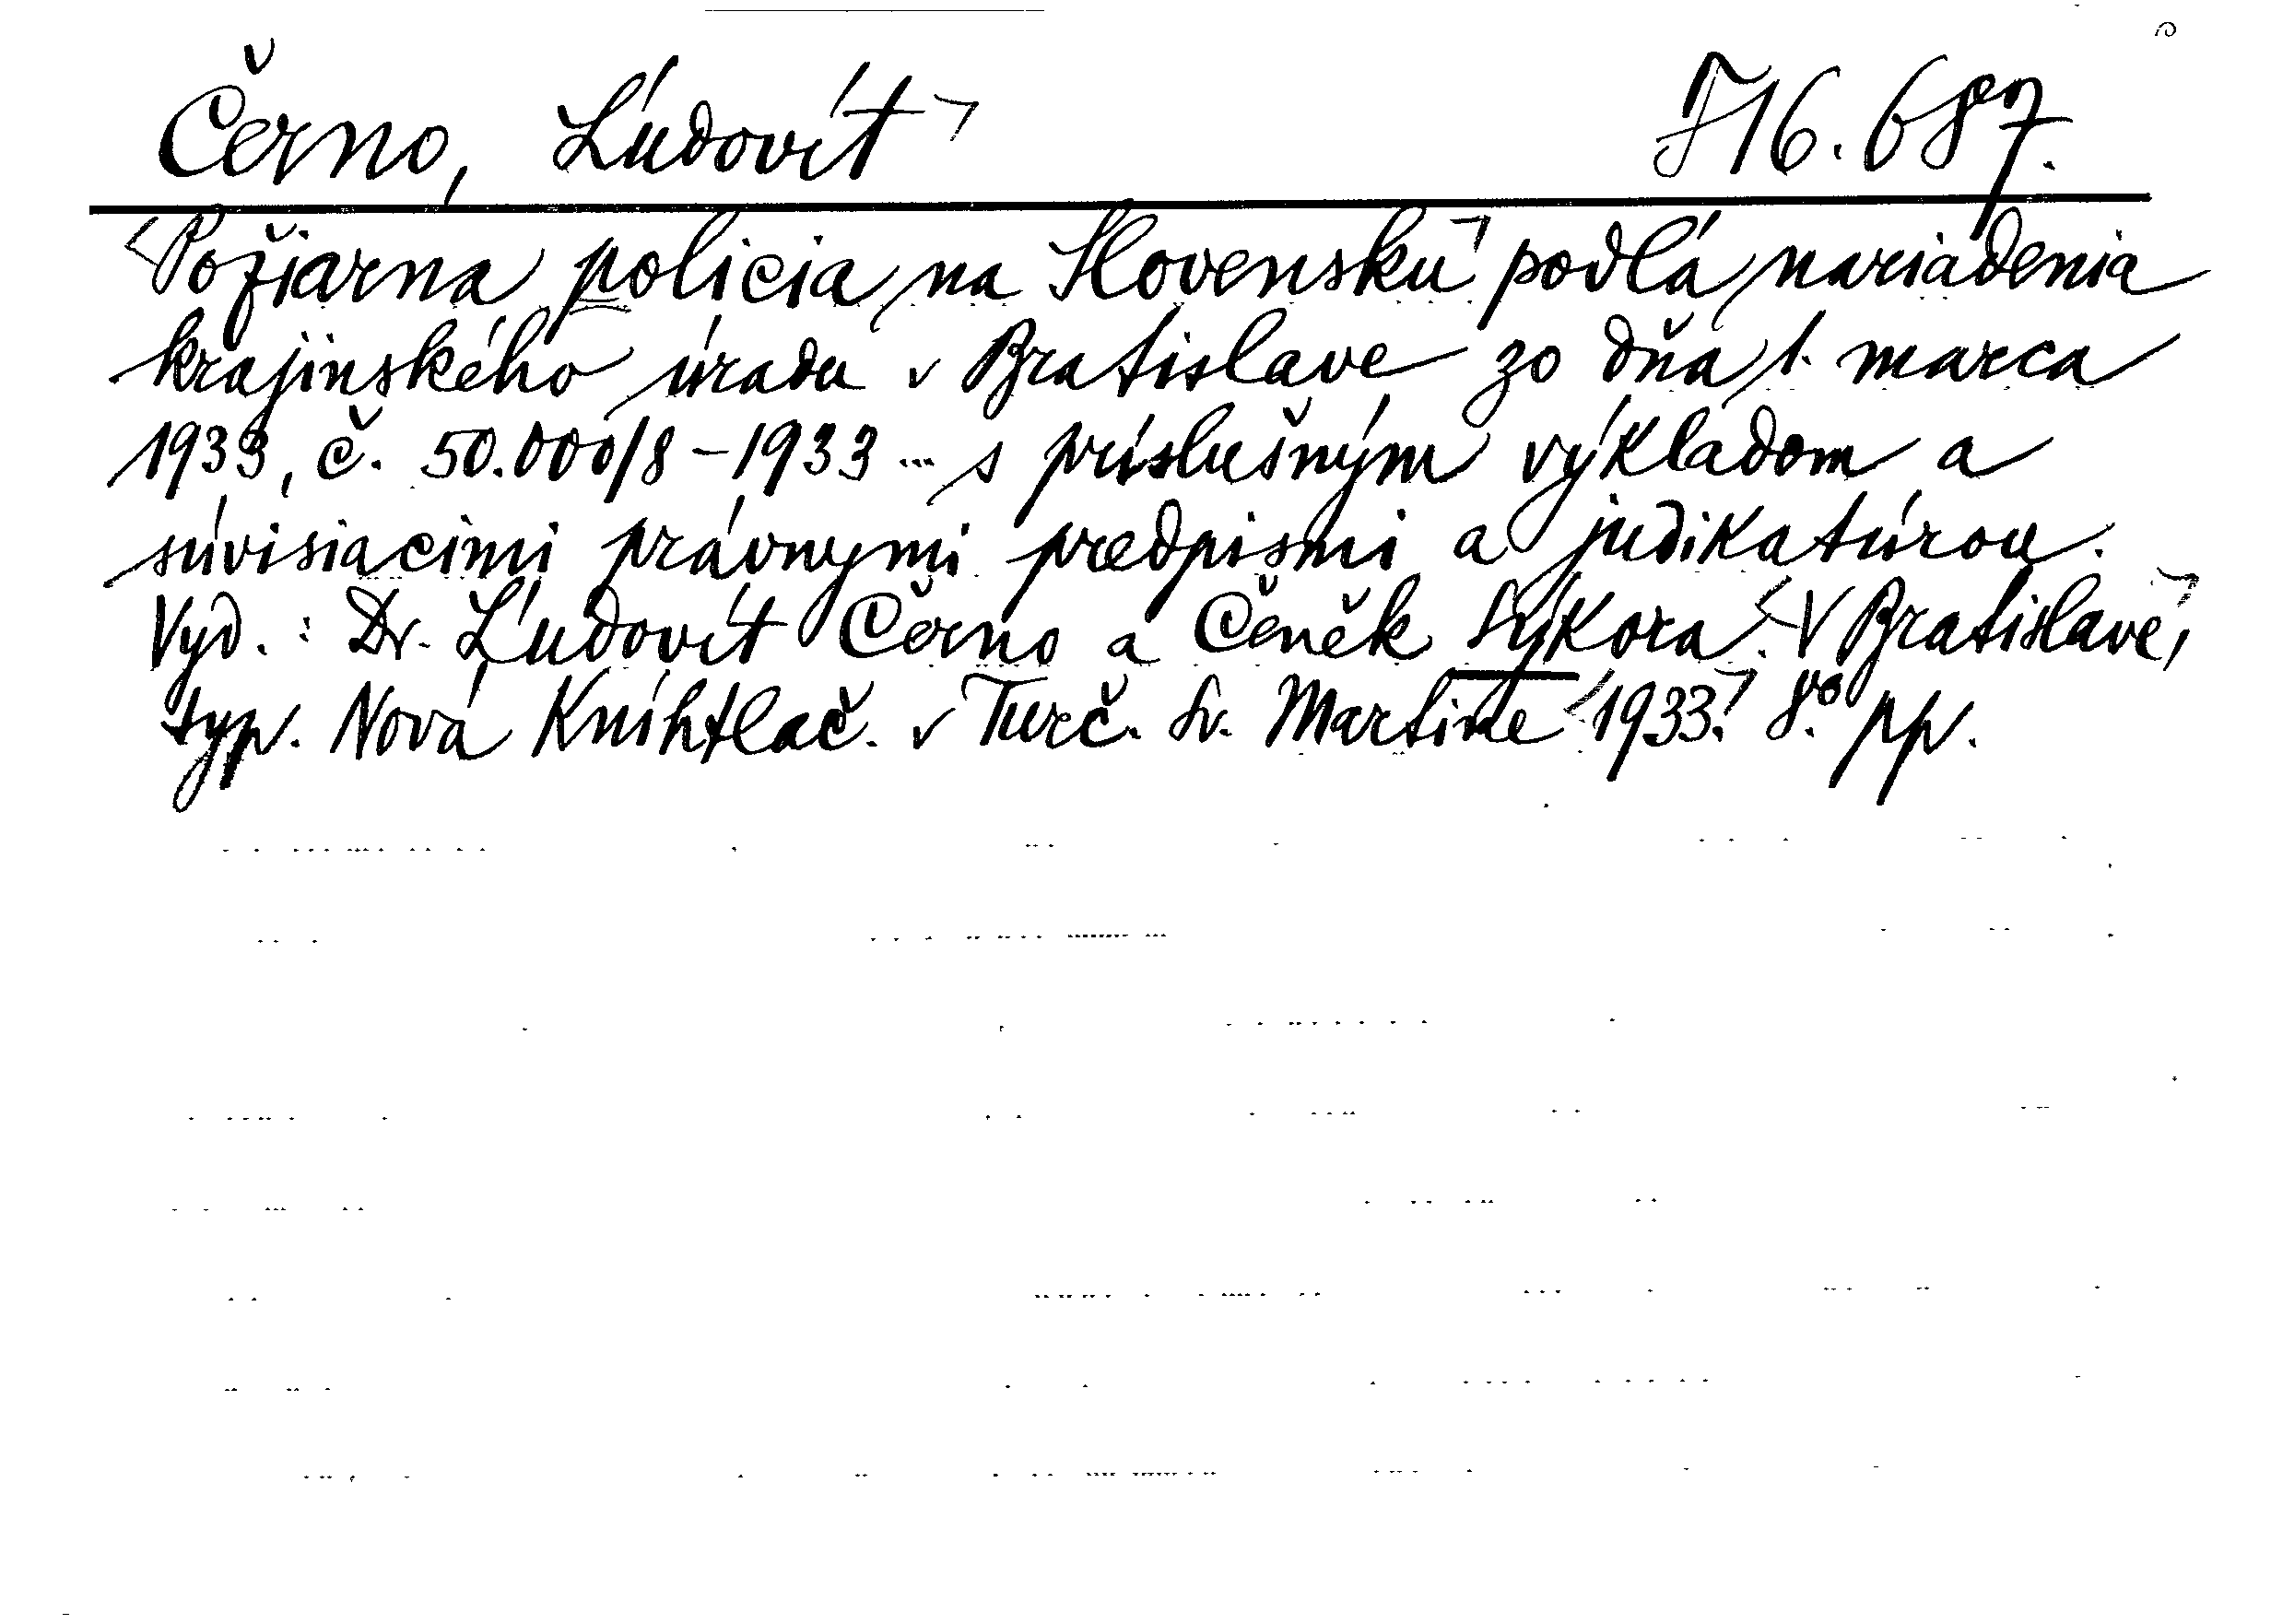 Černo, Ľudovít J 16.687.
Požiarna polícia na Slovensku podľa nariadenia
krajinského úradu v Bratislave zo dňa 1. marca
1933, č. 50.000/8-1933 ... s príslušným výkladom a
súvisiacimi právnymi predpismi a judikatúrou.
Vyd.: Dr. Ľudovít Černo a Čeněk Sýkora. V Bratislavě,
typ. Nová Kníhtlač. v Turč. Sv. Martine 1933. 8° pp.